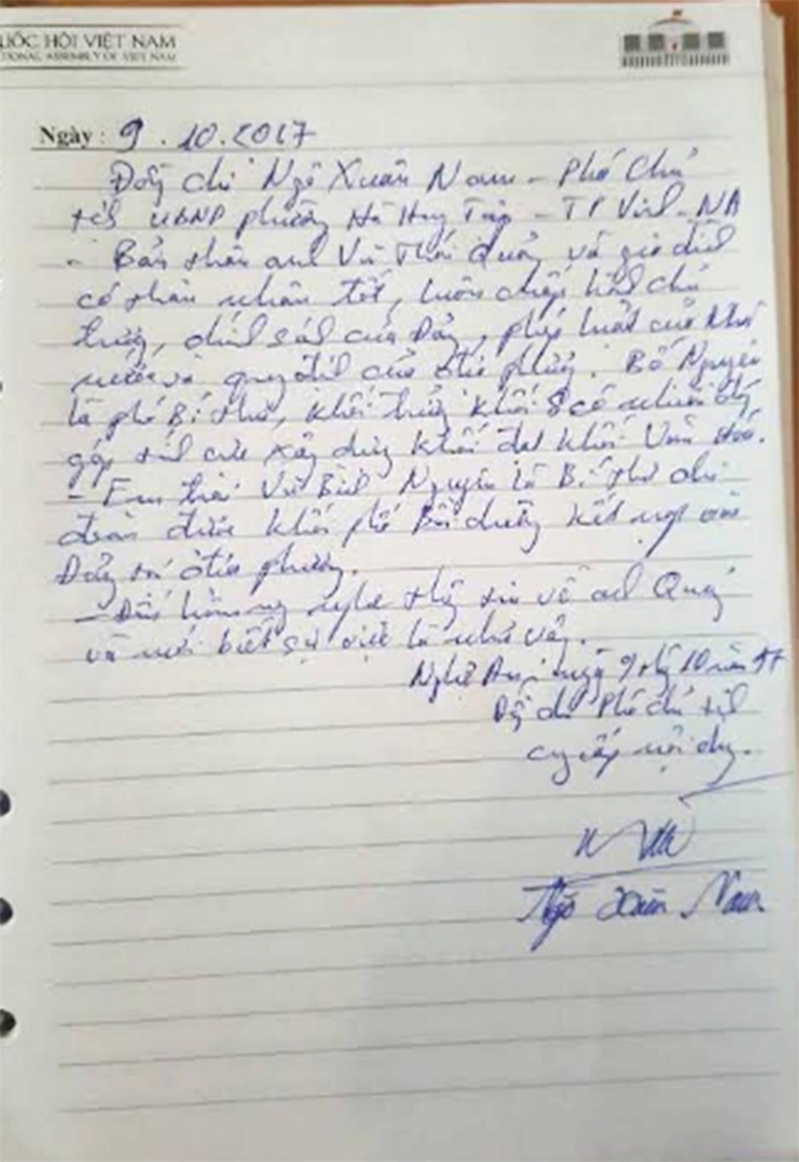 UỐC HỘI VIỆT NAM
TIONAL ASSEMBLY OF VIET NAM
Ngày : 9.10.2017
Đồng chí Ngô Xuân Nam - Phó Chủ
tịch UBND phường Hà Huy Tập - TP Vinh - NA
- Bản thân anh Vũ và gia đình
có thân nhân tốt, luôn chấp hành chủ
trương, chính sách của Đảng, pháp luật của Nhà
nước và quy định của địa phương. Bố Nguyên
là phó Bí thư, khối trưởng khối 8 có nhiều
góp tích cực xây dựng khối đạt khối Văn hóa.
- Em trai Vũ Nguyên là Bí thư chi
đoàn được khối phố bồi dưỡng kết nạp vào
Đảng địa phương.
- Đến hôm nay nghe thông tin về anh
và mới biết sự việc là như vậy.
Nghệ An, ngày 9 tháng 10 năm 17
Đồng chí Phó chủ tịch
cung cấp nội dung.
Ngô Xuân Nam